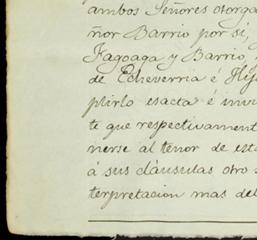 ambos Señores otorga
ñor Barrio por sí,
Fagoaga y Barrio,
de Echeverria é Hij
plirlo esacta é inv
te que respectivament
nerse al tenor de est
á sus cláusulas otro
terpretacion mas del